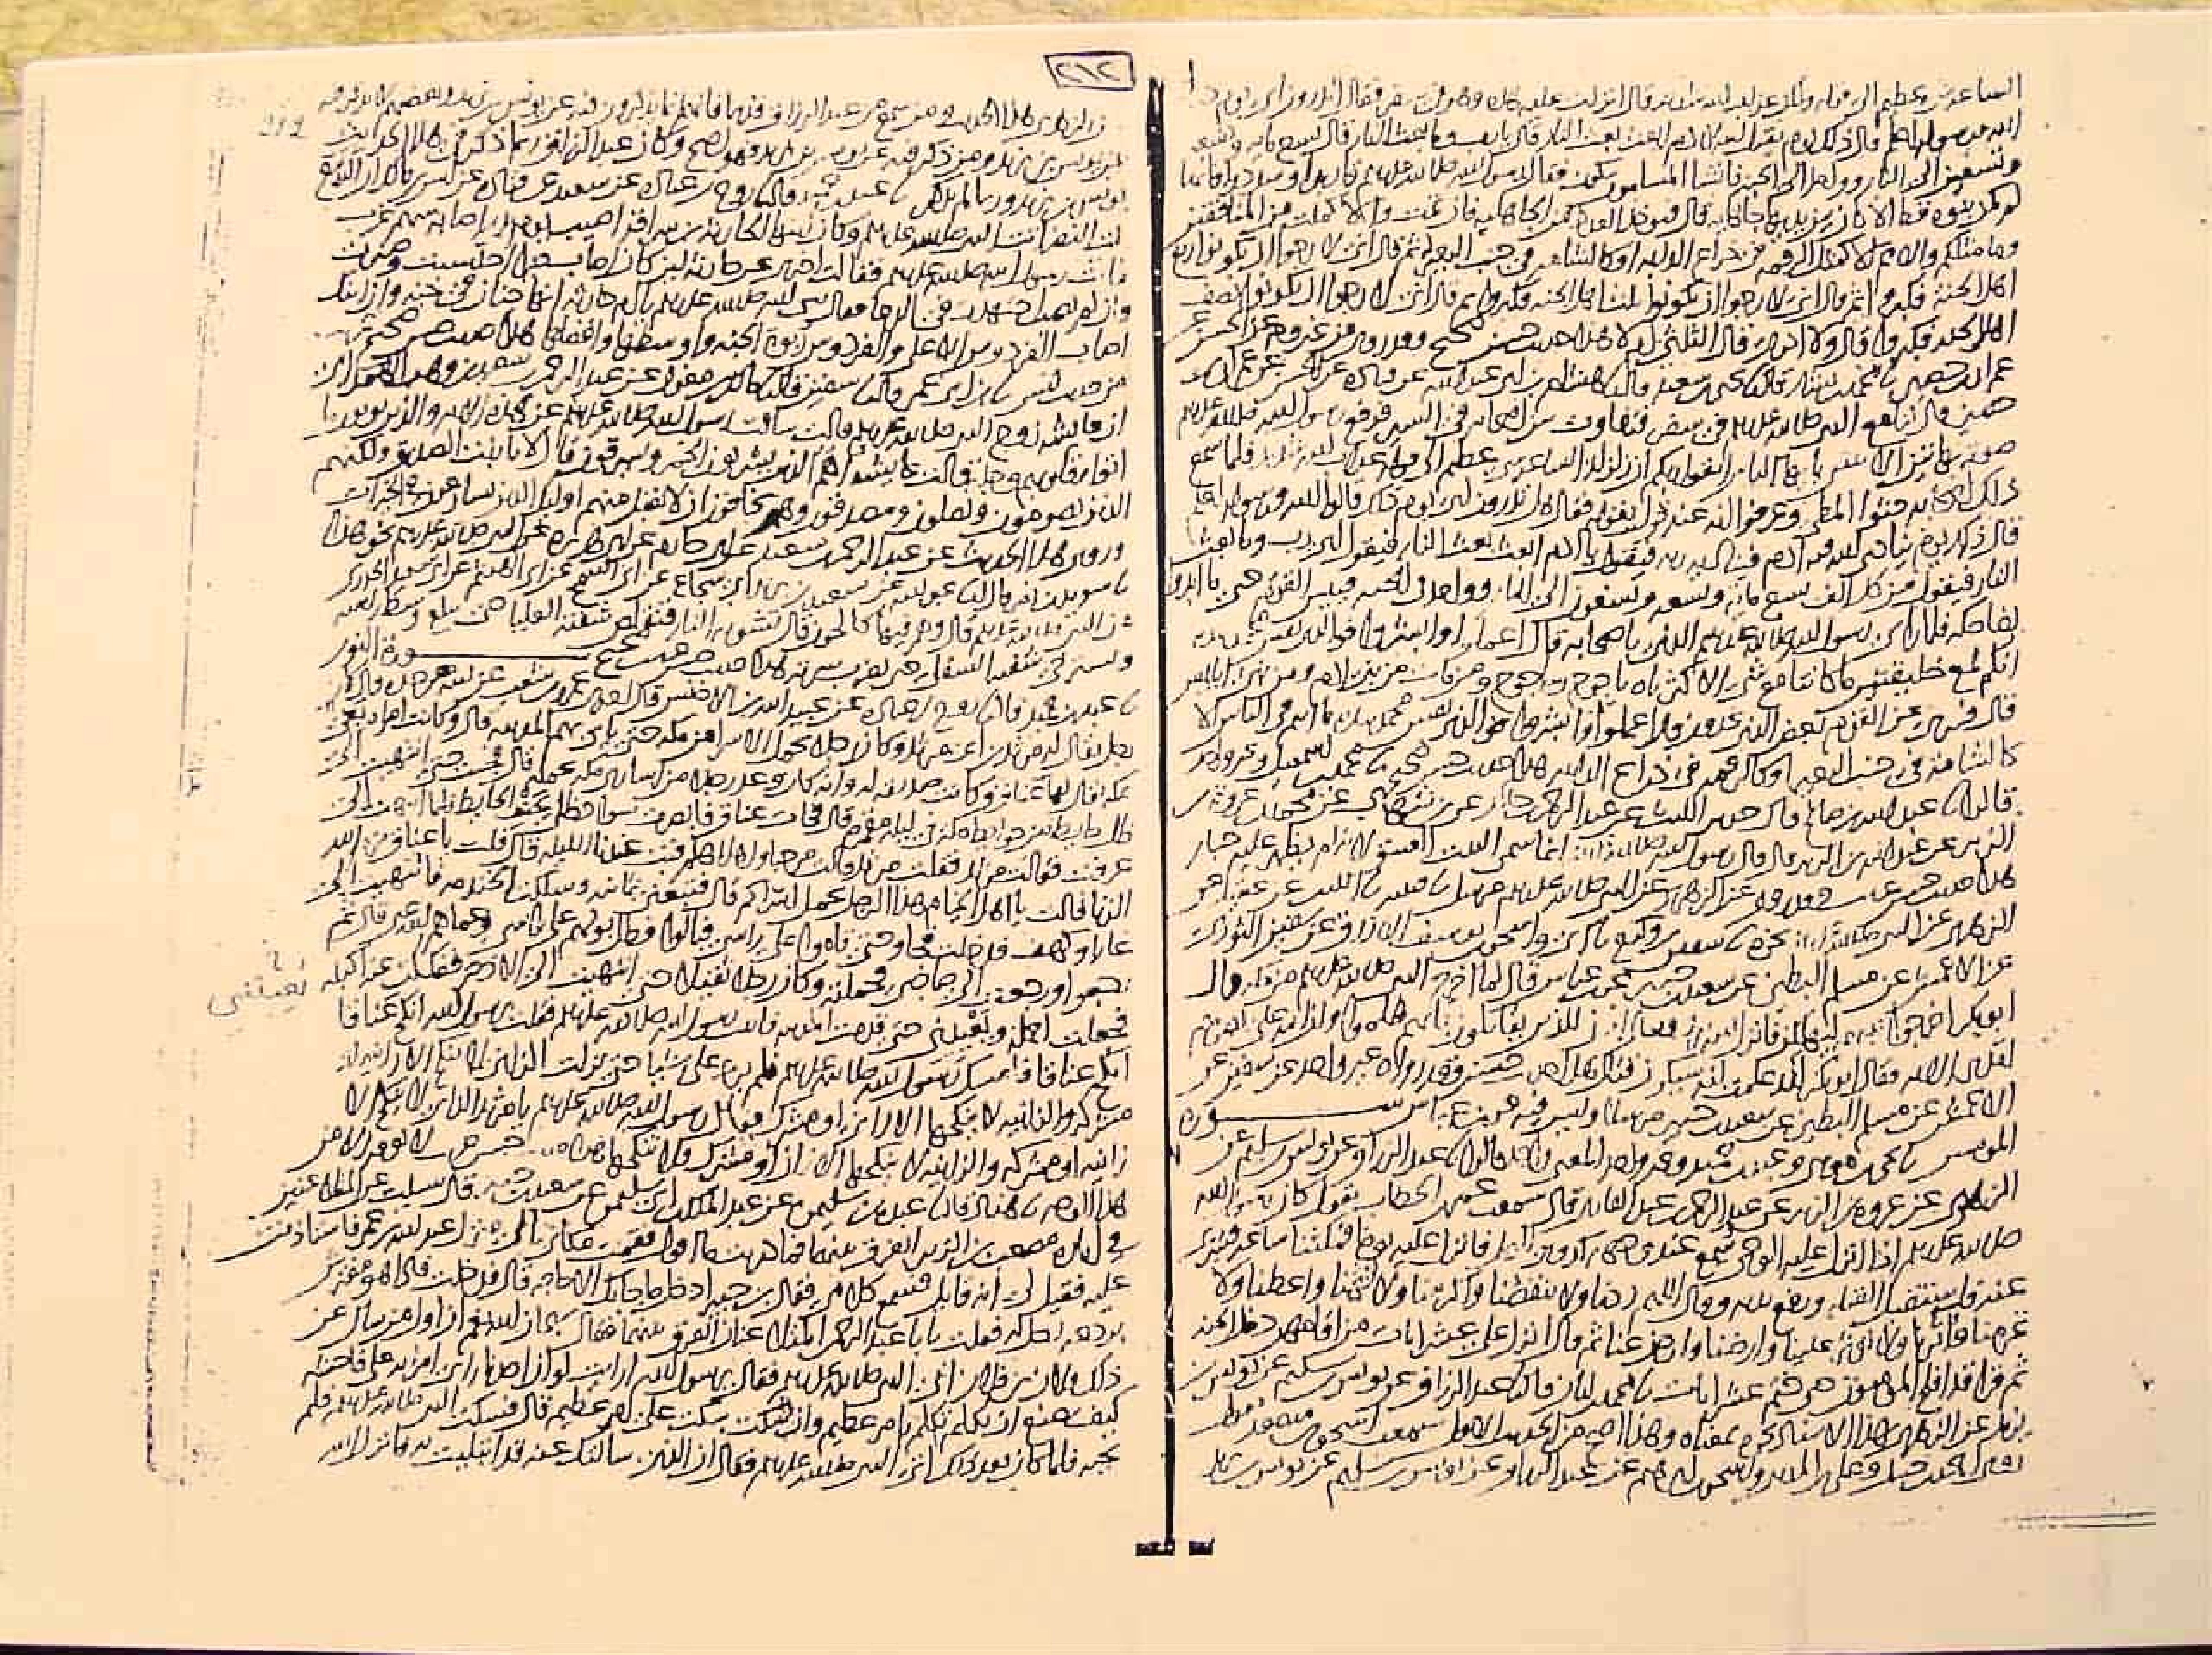 ٢١٢
الساعة شيء عظيم الى قوله قال انزلت عليه هذه وهو في سفر فقال اتدرون اي يوم
الله ورسوله اعلم قال ذلك يوم يقول الله لادم ابعث بعث النار قال يا رب وما بعث النار قال تسع مايه وتسعه
وتسعين الى النار وواحد الى الجنه فانشا المسلمون يبكون فقال رسول الله صلى الله عليه وسلم قاربوا وسددوا فانها
لم تكن نبوة قط الا كان بين يديها جاهليه قال فيوخذ العدد من الجاهليه فان تمت والا كملت من المنافقين
وما مثلكم والامم الا كمثل الرقمه في ذراع الدابه او كالشامه في جنب البعير ثم قال اني لارجوا ان تكونوا ربع
اهل الجنه فكبروا ثم قال اني لارجوا ان تكونوا ثلث اهل الجنه فكبروا ثم قال اني لارجوا ان تكونوا نصف
اهل الجنه فكبروا قال ولا ادري قال الثلثين ام لا هذا حديث حسن صحيح وقد روي من غير وجه عن الحسن عن
عمران بن حصين محمد بن بشار قال يحيى بن سعيد قال هشام بن ابي عبد الله عن قتاده عن الحسن عن عمران
حصين قال كنا مع النبي صلى الله عليه وسلم في سفر فتفاوت بين اصحابه في السير فرفع رسول الله صلى الله عليه وسلم
صوته بهاتين الايتين يا ايها الناس اتقوا ربكم ان زلزلة الساعه شيء عظيم الى قوله عذاب الله شديد فلما سمع
ذلك اصحابه حثوا المطي وعرفوا انه عند قول يقوله فقال هل تدرون اي يوم ذلك قالوا الله ورسوله اعلم
قال ذلك يوم ينادي الله فيه ادم فيناديه ربه فيقول يا ادم ابعث بعث النار فيقول اي رب وما بعث
النار فيقول من كل الف تسع مايه وتسعه وتسعون الى النار وواحد الى الجنه فييس القوم حتى ما ابدوا
بضاحكه فلما راى رسول الله صلى الله عليه وسلم الذي باصحابه قال اعملوا وابشروا فوالذي نفس محمد بيده
انكم لمع خليقتين ما كانتا مع شيء الا كثرتاه ياجوج وماجوج ومن مات من بني ادم ومن بني ابليس
قال فسري عن القوم بعض الذي يجدون قال اعملوا وابشروا فوالذي نفس محمد بيده ما انتم في الناس الا
كالشامه في جنب البعير او كالرقمه في ذراع الدابه هذا حديث حسن صحيح محمد بن اسمعيل وغير واحد
قالوا عبد الله بن صالح قال حدثني الليث عن عبد الرحمن بن خالد عن ابن شهاب عن محمد بن عروة بن
الزبير عن عبد الله بن الزبير قال قال رسول الله صلى الله عليه وسلم انما سمي البيت العتيق لانه لم يظهر عليه جبار
هذا حديث حسن وقد روي عن الزهري عن النبي صلى الله عليه وسلم مرسلا قتيبه الليث عن عقيل عن
الزهري عن النبي صلى الله عليه وسلم نحوه سفين بن وكيع ابي واسحق بن يوسف الازرق عن سفين الثوري
عن الاعمش عن مسلم البطين عن سعيد بن جبير عن ابن عباس قال لما اخرج النبي صلى الله عليه وسلم من مكه قال
ابو بكر اخرجوا نبيهم ليهلكن فانزل الله اذن للذين يقاتلون بانهم ظلموا وان الله على نصرهم
لقدير الايه فقال ابو بكر لقد علمت انه سيكون قتال هذا حديث حسن وقد رواه غير واحد عن سفين عن
الاعمش عن مسلم البطين عن سعيد بن جبير مرسلا وليس فيه عن ابن عباس سوره
المومنين يحيى بن موسى وعبد بن حميد وغير واحد المعنى واحد قالوا عبد الرزاق عن يونس بن سليم عن
الزهري عن عروة بن الزبير عن عبد الرحمن بن عبد القاري قال سمعت عمر بن الخطاب يقول كان رسول الله
صلى الله عليه وسلم اذا انزل عليه الوحي سمع عند وجهه كدوي النحل فانزل عليه يوما فمكثنا ساعه فسري
عنه فاستقبل القبله ورفع يديه وقال اللهم زدنا ولا تنقصنا واكرمنا ولا تهنا واعطنا ولا
تحرمنا واثرنا ولا توثر علينا وارضنا وارض عنا ثم قال انزل علي عشر ايات من اقامهن دخل الجنه
ثم قرا قد افلح المومنون حتى ختم عشر ايات محمد بن ابان قال عبد الرزاق عن يونس بن سليم عن يونس بن
يزيد عن الزهري بهذا الاسناد نحوه بمعناه وهذا اصح من الحديث الاول سمعت اسحق بن منصور يقول
روى احمد بن حنبل وعلي بن المديني واسحق بن ابراهيم عن عبد الرزاق عن يونس بن سليم عن يونس بن يزيد
212
عن الزهري هذا الحديث ومن سمع من عبد الرزاق قديما فانهم انما يذكرون فيه عن يونس بن يزيد وبعضهم لا يذكر فيه
عن يونس بن يزيد ومن ذكر فيه عن يونس بن يزيد فهو اصح وكان عبد الرزاق ربما ذكر في هذا الحديث
يونس بن يزيد وربما لم يذكره عبد بن حميد قال روح بن عباده عن سعيد عن قتاده عن انس بن مالك ان الربيع
بنت النضر اتت النبي صلى الله عليه وسلم وكان ابنها الحارثه بن سراقه اصيب يوم بدر اصابه سهم غرب
فاتت رسول الله صلى الله عليه وسلم فقالت اخبرني عن حارثه لين كان اصاب خيرا احتسبت وصبرت
وان لم يصب الخير اجتهدت في الدعا فقال نبي الله صلى الله عليه وسلم يا ام حارثه انها جنان في جنه وان ابنك
اصاب الفردوس الاعلى والفردوس ربوة الجنه واوسطها وافضلها هذا حديث حسن صحيح غريب
من حديث انس ابن ابي عمر قال سفين قال مالك بن مغول عن عبد الرحمن بن سعيد بن وهب الهمداني
ان عايشه زوج النبي صلى الله عليه وسلم قالت سالت رسول الله صلى الله عليه وسلم عن هذه الايه والذين يوتون ما
اتوا وقلوبهم وجله قالت عايشه اهم الذين يشربون الخمر ويسرقون قال لا يا بنت الصديق ولكنهم
الذين يصومون ويصلون ويصدقون وهم يخافون ان لا تقبل منهم اوليك الذين يسارعون في الخيرات
وروي هذا الحديث عن عبد الرحمن بن سعيد عن ابي حازم عن ابي هريره عن النبي صلى الله عليه وسلم نحو هذا
سويد بن نصر قال عبد الله عن سعيد بن يزيد ابي شجاع عن ابي السمح عن ابي الهيثم عن ابي سعيد الخدري
عن النبي صلى الله عليه وسلم قال وهم فيها كالحون قال تشويه النار فتقلص شفته العليا حتى تبلغ وسط راسه
وتسترخي شفته السفلى حتى تضرب سرته هذا حديث حسن صحيح سورة النور
عبد بن حميد قال روح بن عباده عن عبيد الله بن الاخنس قال اخبرني عمرو بن شعيب عن ابيه عن جده قال كان
رجل يقال له مرثد بن ابي مرثد وكان رجل يحمل الاسرى من مكه حتى ياتي بهم المدينه قال وكانت امراة بغي
بمكه يقال لها عناق وكانت صديقة له وانه كان وعد رجلا من اسارى مكه يحمله قال فجئت حتى انتهيت الى
ظل حايط من حوايط مكه في ليلة مقمره قال فجات عناق فابصرت سواد ظلي بجنب الحايط فلما انتهت الي
عرفت فقالت مرثد فقلت مرثد قالت مرحبا واهلا هلم فبت عندنا الليله قال قلت يا عناق حرم الله
الزنا قالت يا اهل الخيام هذا الرجل يحمل اسراكم قال فتبعني ثمانيه وسلكت الخندمه فانتهيت الى
غار او كهف فدخلت فجاوا حتى قاموا على راسي فبالوا فظل بولهم على راسي وعماهم الله عني قال ثم
رجعوا ورجعت الى صاحبي فحملته وكان رجلا ثقيلا حتى انتهيت الى الاذخر ففككت عنه اكبله
فجعلت احمله ويعييني حتى قدمت المدينه فاتيت رسول الله صلى الله عليه وسلم فقلت يرسول الله انكح عناقا
انكح عناقا فامسك رسول الله صلى الله عليه وسلم فلم يرد علي شيا حتى نزلت الزاني لا ينكح الا زانيه او
مشركه والزانيه لا ينكحها الا زان او مشرك فقال رسول الله صلى الله عليه وسلم يا مرثد الزاني لا ينكح الا
زانيه او مشركه والزانيه لا ينكحها الا زان او مشرك فلا تنكحها هذا حديث حسن غريب لا نعرفه الا من
هذا الوجه هناد قال عبده بن سليمن عن عبد الملك بن ابي سليمن عن سعيد بن جبير قال سيلت عن المتلاعنين
في اماره مصعب بن الزبير ايفرق بينهما فما دريت ما اقول فقمت مكاني الى منزل عبد الله بن عمر فاستاذنت
عليه فقيل لي انه قايل فسمع كلامي فقال ابن جبير ادخل ما جا بك الا حاجه قال فدخلت فاذا هو مفترش
بردعه رحل له فقلت يا ابا عبد الرحمن المتلاعنان ايفرق بينهما فقال سبحان الله نعم ان اول من سال عن
ذلك فلان بن فلان اتى النبي صلى الله عليه وسلم فقال يرسول الله ارايت لو ان احدنا راى امراته على فاحشه
كيف يصنع ان تكلم تكلم بامر عظيم وان سكت سكت على امر عظيم قال فسكت النبي صلى الله عليه وسلم فلم
يجبه فلما كان بعد ذلك اتى النبي صلى الله عليه وسلم فقال ان الذي سالتك عنه قد ابتليت به فانزل الله